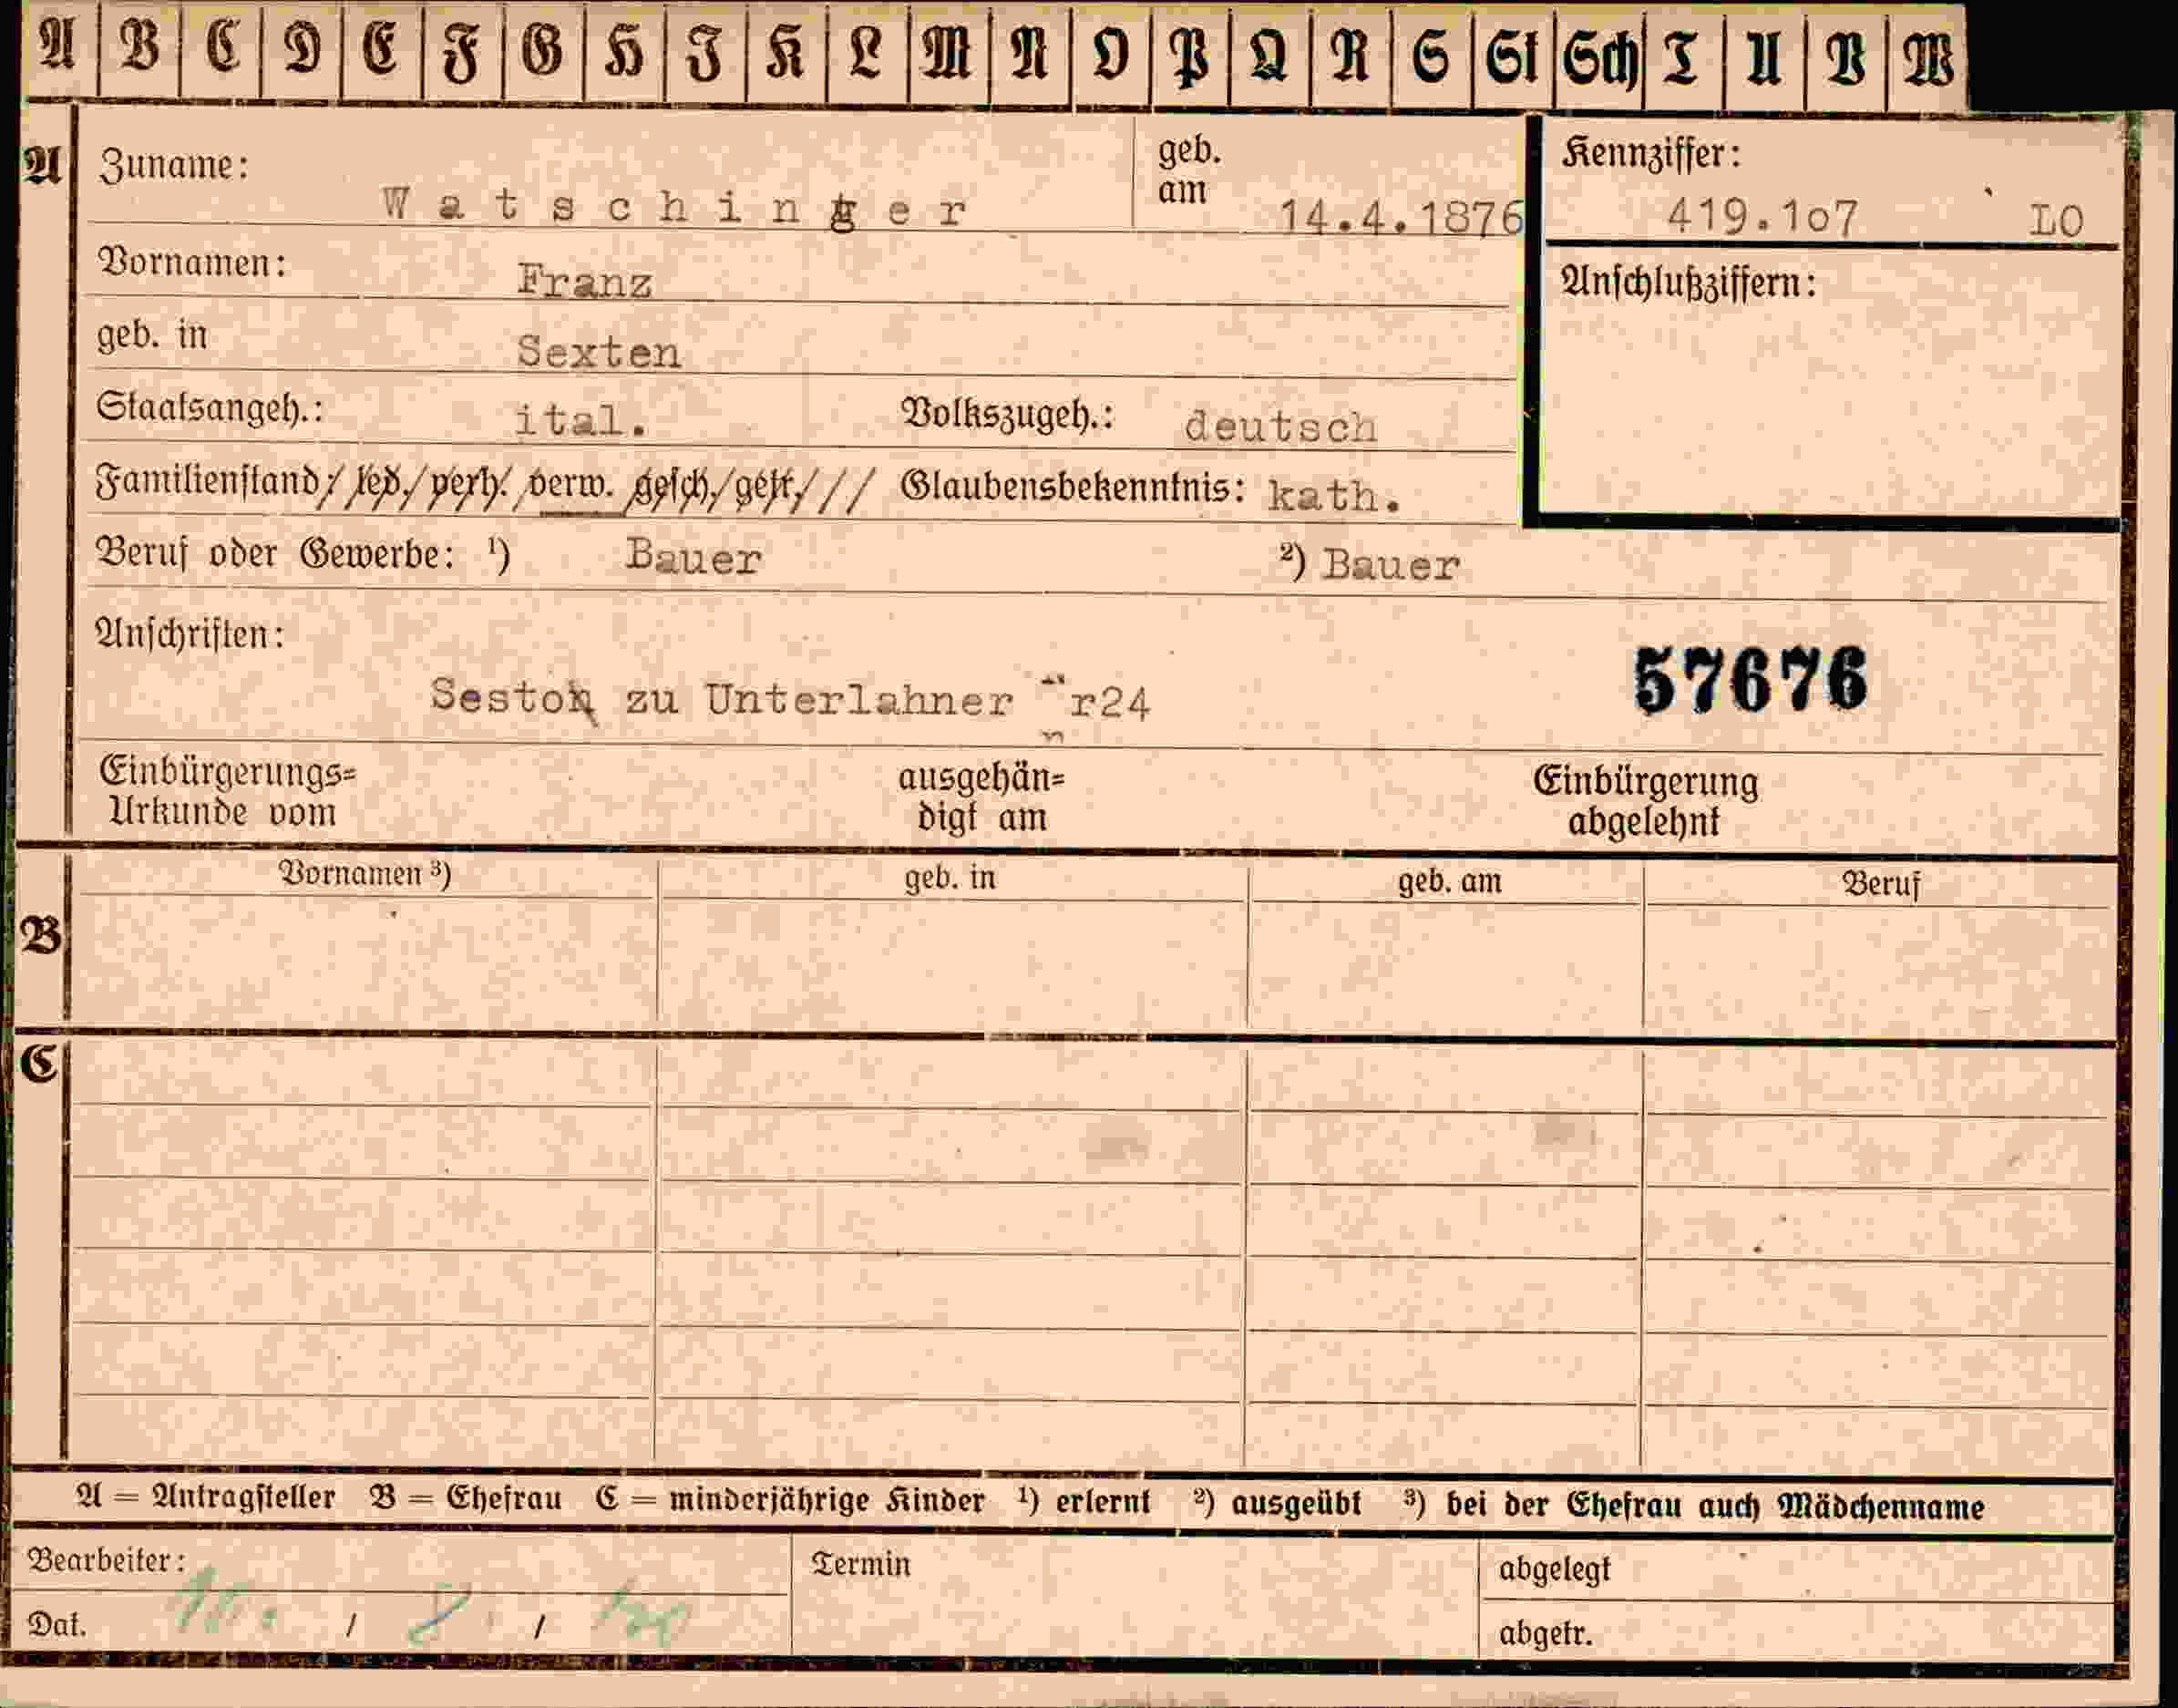 A B C D E F G H J K L M N O P Q R S St Sch T U V W
A Zuname: Watschinger geb. am 14.4.1876 Kennziffer: 419.1o7 LO
Vornamen: Franz Anschlußziffern:
geb. in Sexten
Staatsangeh.: ital. Volkszugeh.: deutsch
Familienstand: led. verh. verw. gesch. getr. Glaubensbekenntnis: kath.
Beruf oder Gewerbe: ¹) Bauer ²) Bauer
Anschriften:
57676
Seston zu Unterlahner nr24
Einbürgerungs= ausgehän= Einbürgerung
Urkunde vom digt am abgelehnt
Vornamen ³) geb. in geb. am Beruf
B
C
A = Antragsteller B = Ehefrau C = minderjährige Kinder ¹) erlernt ²) ausgeübt ³) bei der Ehefrau auch Mädchenname
Bearbeiter: Termin abgelegt
Dat. / / abgetr.